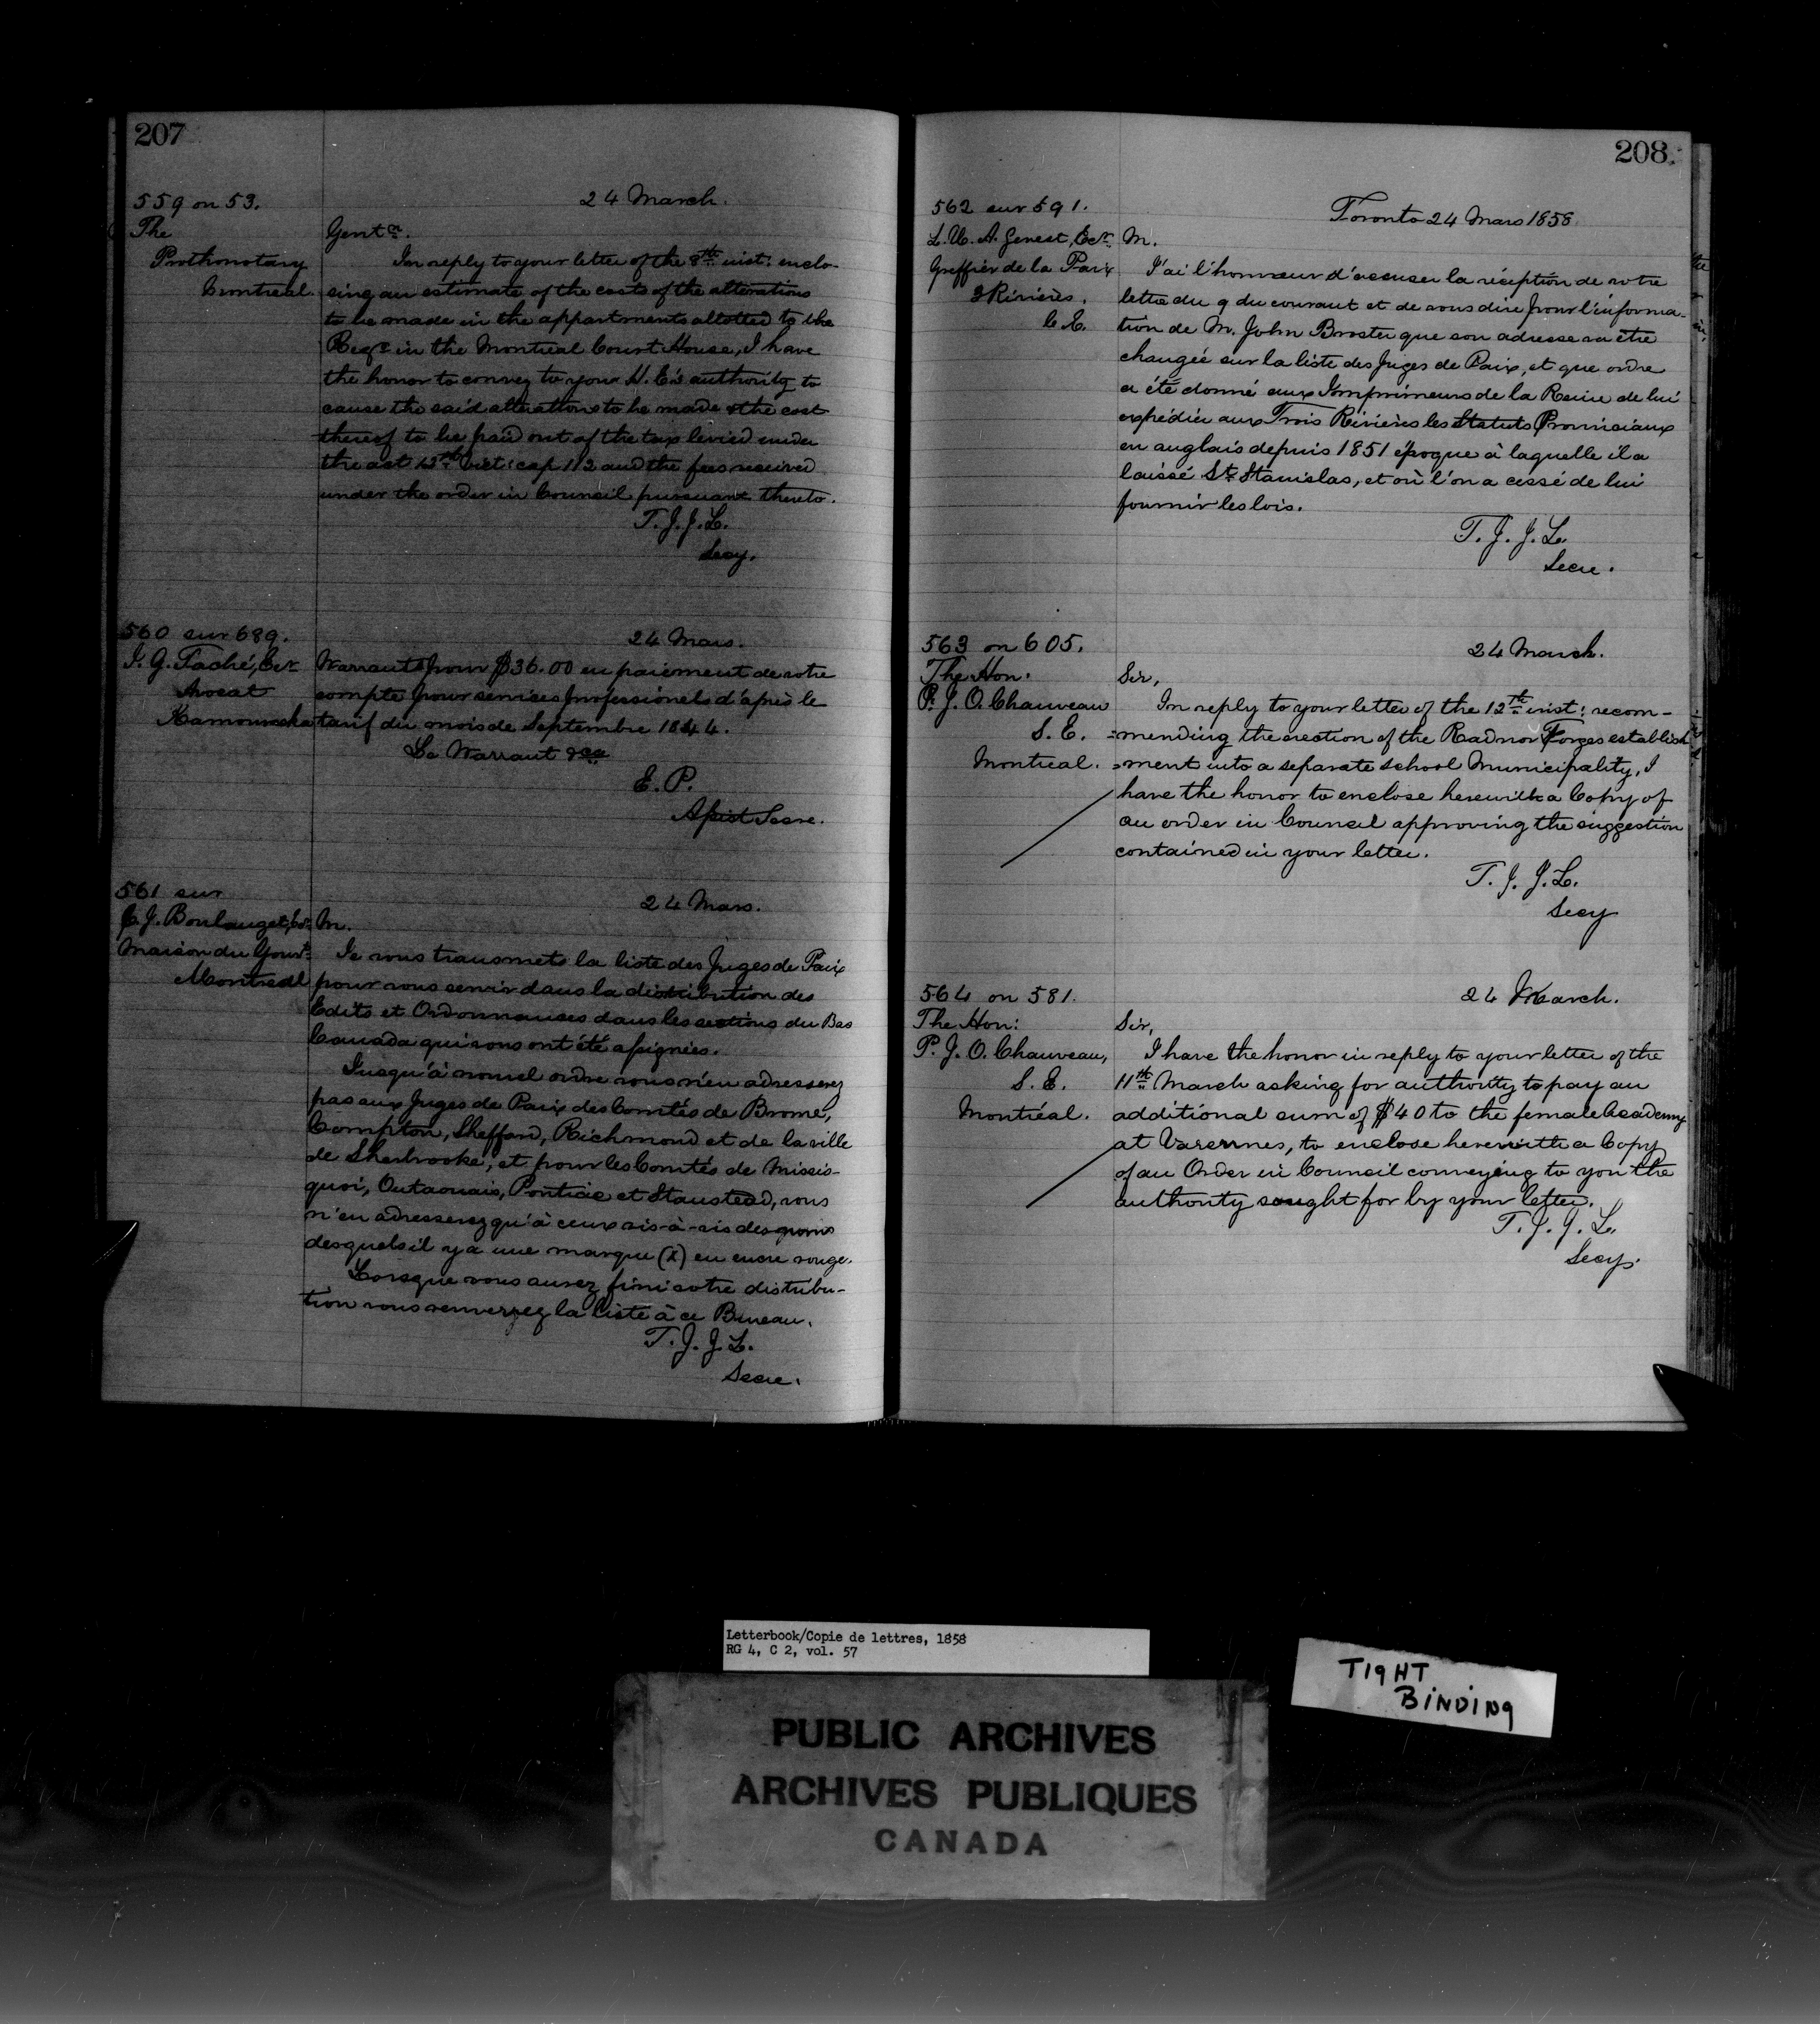 207
559 on 53.
24 March.
The
Prothonotary
Montreal.
Gentn.
In reply to your letter of the 8th inst: enclo-
sing an estimate of the costs of the alterations
to be made in the appartments allotted to the
Regr in the Montreal Court House, I have
the honor to convey to your H. E's authority to
cause the said alterations to be made & the cost
thereof to be paid out of the tax levied under
the act 12th Vict: cap 112 and the fees received
under the order in Council pursuant thereto.
T. J. J. L.
Secy.
560 sur 689.
24 Mars.
J. G. Taché, Ecr
Avocat
Kamouraska
Warrants pour $36.00 en paiement de votre
compte pour services professionels d'après le
tarif du mois de Septembre 1844.
Le Warrant &ca
E. P.
Assist Secre.
561 sur
24 Mars.
J. Boulanget, Ecr
Maison du Gouvt
Montreal
M.
Je vous transmets la liste des Juges de Paix
pour vous servir dans la distribution des
Edits et Ordonnances dans les sections du Bas
Canada qui vous ont été assignées.
Jusqu'à nouvel ordre vous n'en adresserez
pas aux Juges de Paix des Comtés de Brome,
Compton, Shefford, Richmond et de la ville
de Sherbrooke, et pour les Comtés de Missis-
quoi, Outaouais, Pontiac et Stanstead, vous
n'en adresserez qu'à ceux vis-à-vis des noms
desquels il y a une marque (X) en encre rouge.
Lorsque vous aurez fini votre distribu-
tion vous renverrez la liste à ce Bureau.
T. J. J. L.
Secre.
208
562 sur 591.
Toronto 24 Mars 1858
L. U. A. Genest, Ecr
Greffier de la Paix
3 Rivières.
C. E.
M.
J'ai l'honneur d'accuser la réception de votre
lettre du 9 du courant et de vous dire pour l'informa-
tion de M. John Broster que son adresse va être
changée sur la liste des Juges de Paix, et que ordre
a été donné aux Imprimeurs de la Reine de lui
expédier aux Trois Rivières les Statuts Provinciaux
en anglais depuis 1851 époque à laquelle il a
laissé St. Stanislas, et où l'on a cessé de lui
fournir les lois.
T. J. J. L.
Secre.
563 on 605.
24 March.
The Hon:
P. J. O. Chauveau
S. E.
Montreal.
Sir,
In reply to your letter of the 12th inst: recom-
=mending the erection of the Radnor Forges establish
=ment into a separate school Municipality, I
have the honor to enclose herewith a Copy of
an order in Council approving the suggestion
contained in your letter.
T. J. J. L.
Secy
564 on 581.
24 March.
The Hon:
P. J. O. Chauveau,
S. E.
Montréal.
Sir,
I have the honor in reply to your letter of the
11th March asking for authority to pay an
additional sum of $40 to the female Academy
at Varennes, to enclose herewith a Copy
of an Order in Council conveying to you the
authority sought for by your letter.
T. J. J. L.
Secy.
Letterbook/Copie de lettres, 1858
RG 4, C 2, vol. 57
TIGHT
BINDING
PUBLIC ARCHIVES
ARCHIVES PUBLIQUES
CANADA